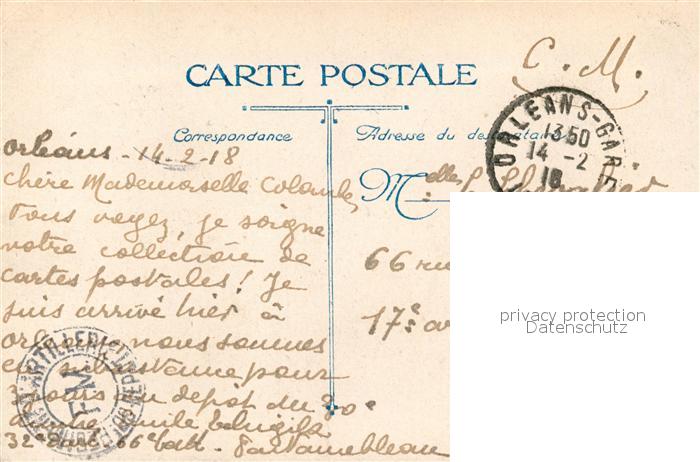 C. M.
CARTE POSTALE
Correspondance
Adresse du destinataire
ORLEANS-GARE
13 50
14 - 2
18
Orléans - 14-2-18
Chère Mademoiselle Colombe,
Vous voyez, je soigne
votre collection de
cartes postales! Je
suis arrivé hier à
nous sommes
en subsistance pour
au dépôt du 30e
32e 66e Batt. Fontainebleau
Melle
66 rue
17e ar
privacy protection
Datenschutz
ARTILLERIE
FM